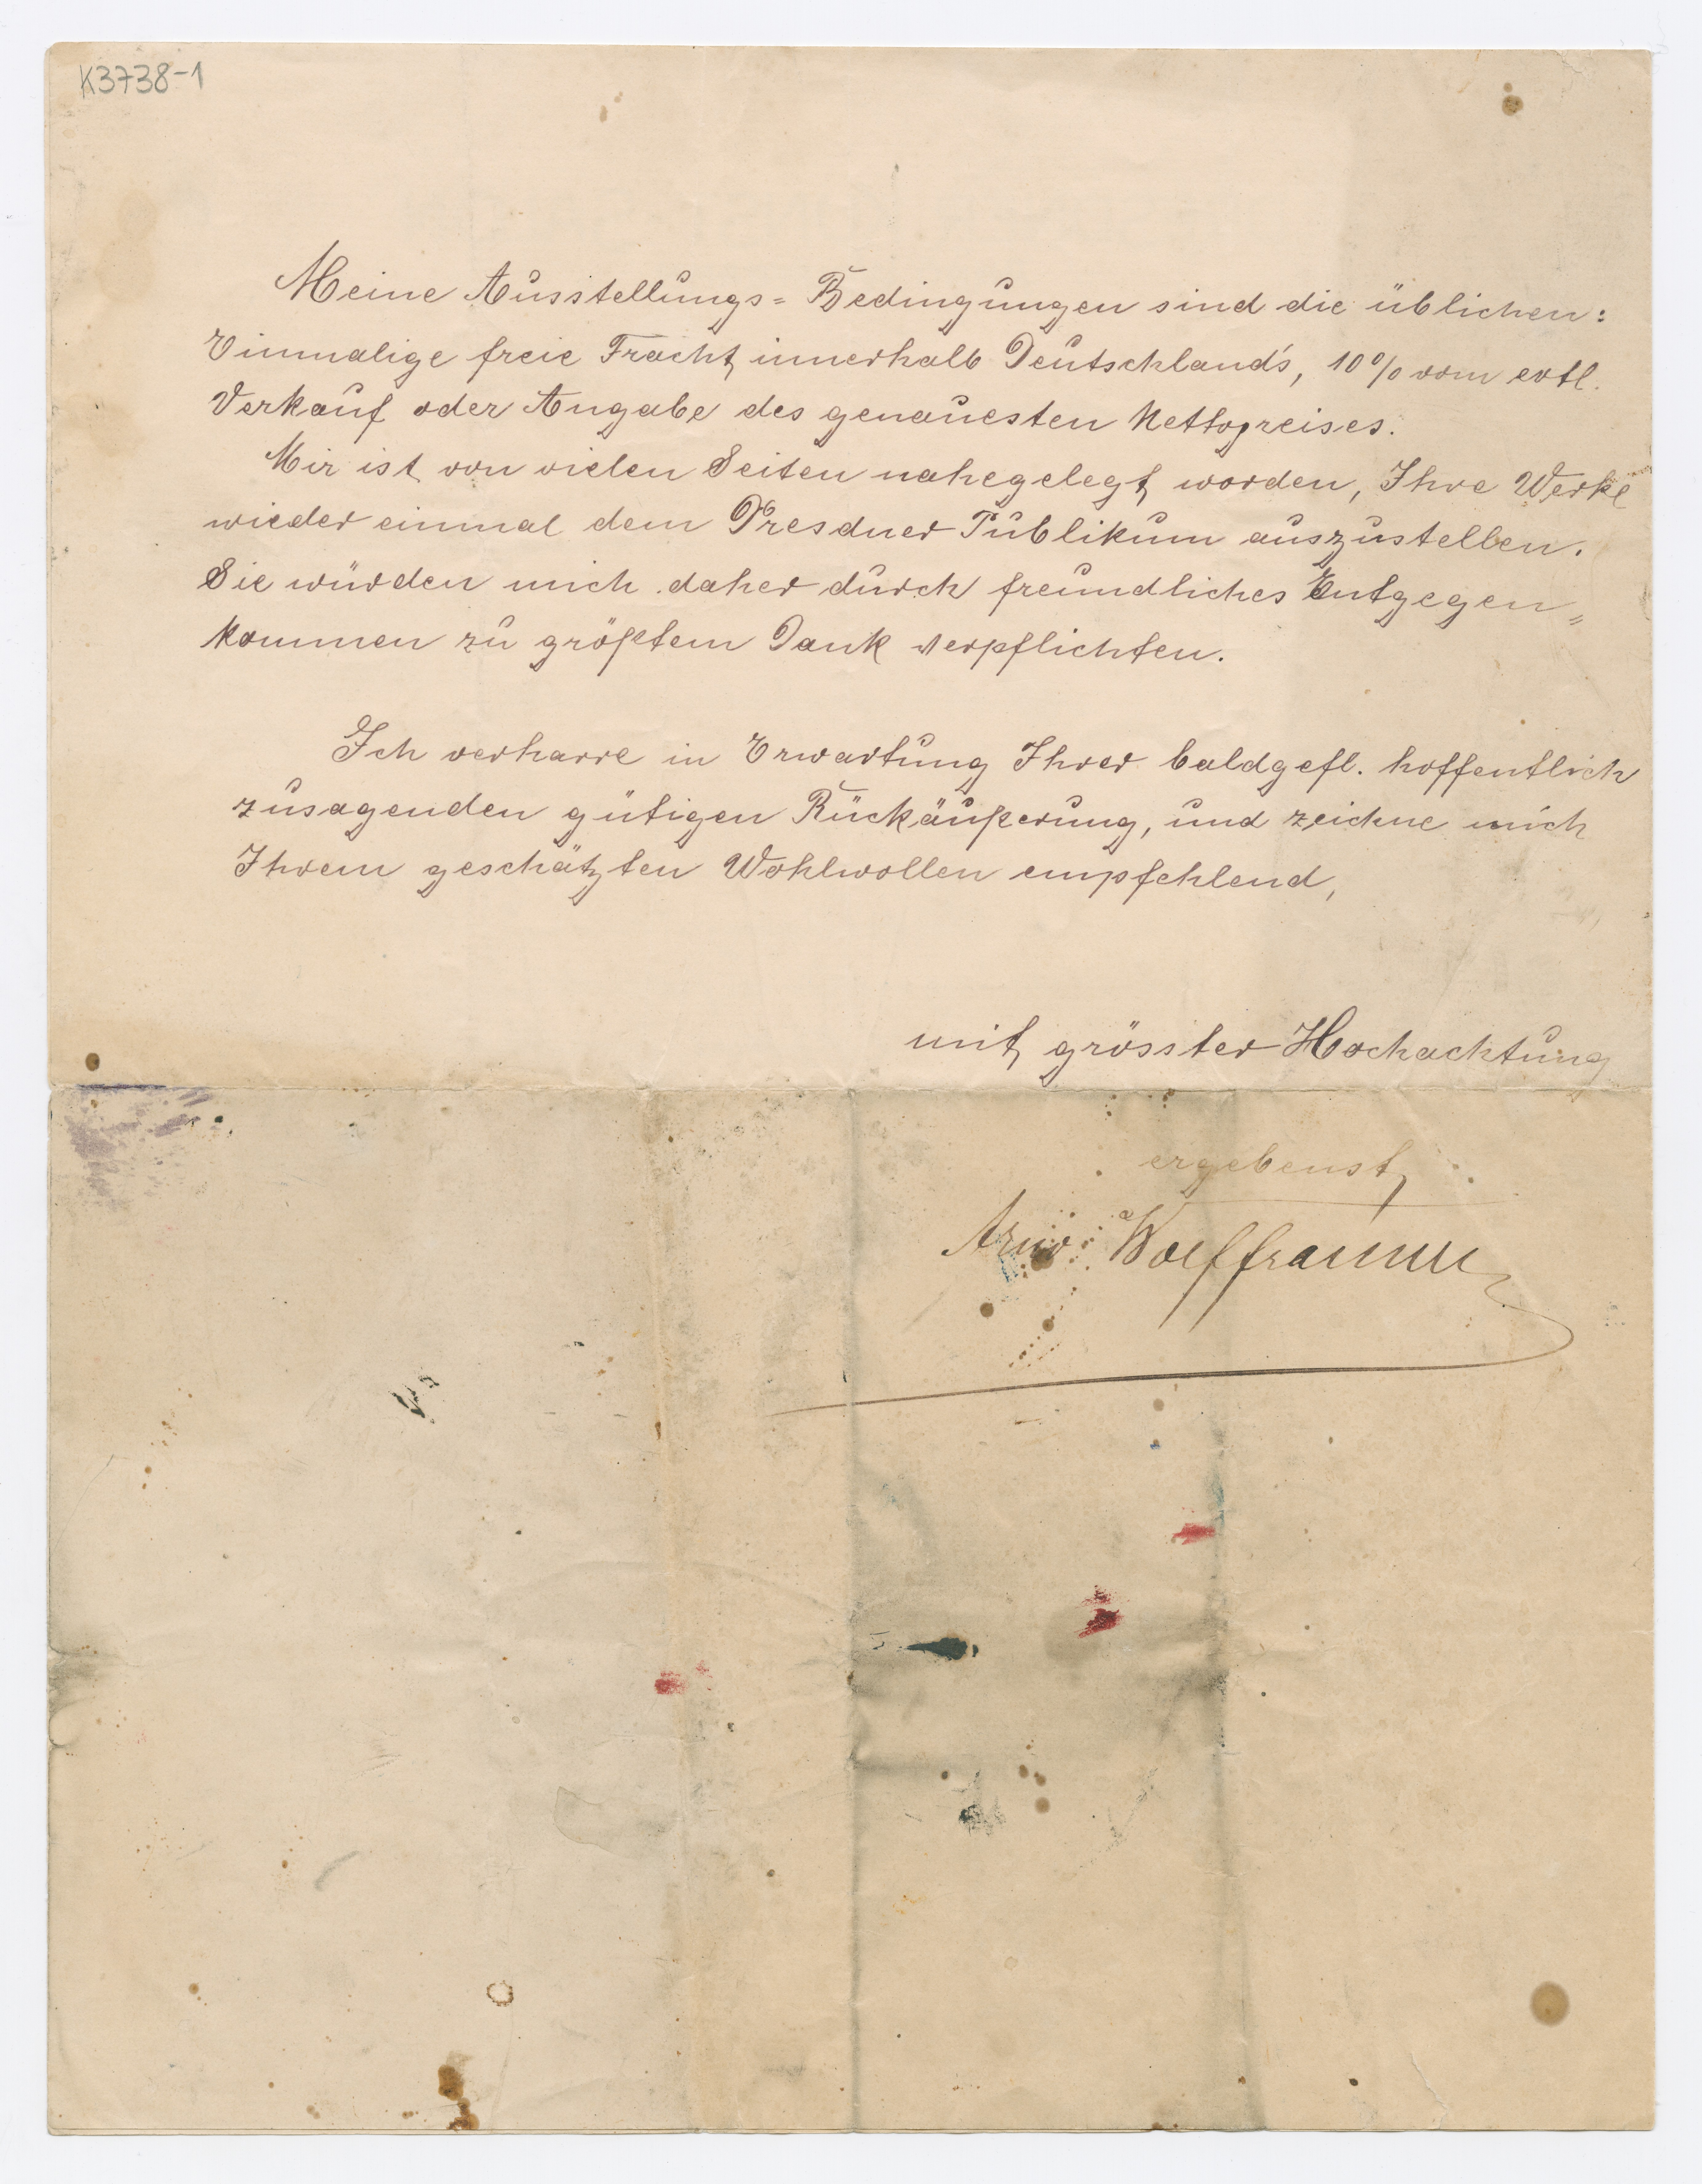 K3738-1
Meine Ausstellungs= Bedingungen sind die üblichen:
Einmalige freie Fracht innerhalb Deutschland's, 10% vom evtl.
Verkauf oder Angabe des genauesten Nettopreises.
Mir ist von vielen Seiten nahegelegt worden, Ihre Werke
wieder einmal dem Dresdner Publikum auszustellen.
Sie würden mich daher durch freundliches Entgegen„
kommen zu größtem Dank verpflichten.
Ich verharre in Erwartung Ihrer baldgefl. hoffentlich
zusagenden gütigen Rückäußerung, und zeichne mich
Ihrem geschätzten Wohlwollen empfehlend,
mit grösster Hochachtung
ergebenst
Wolfframm